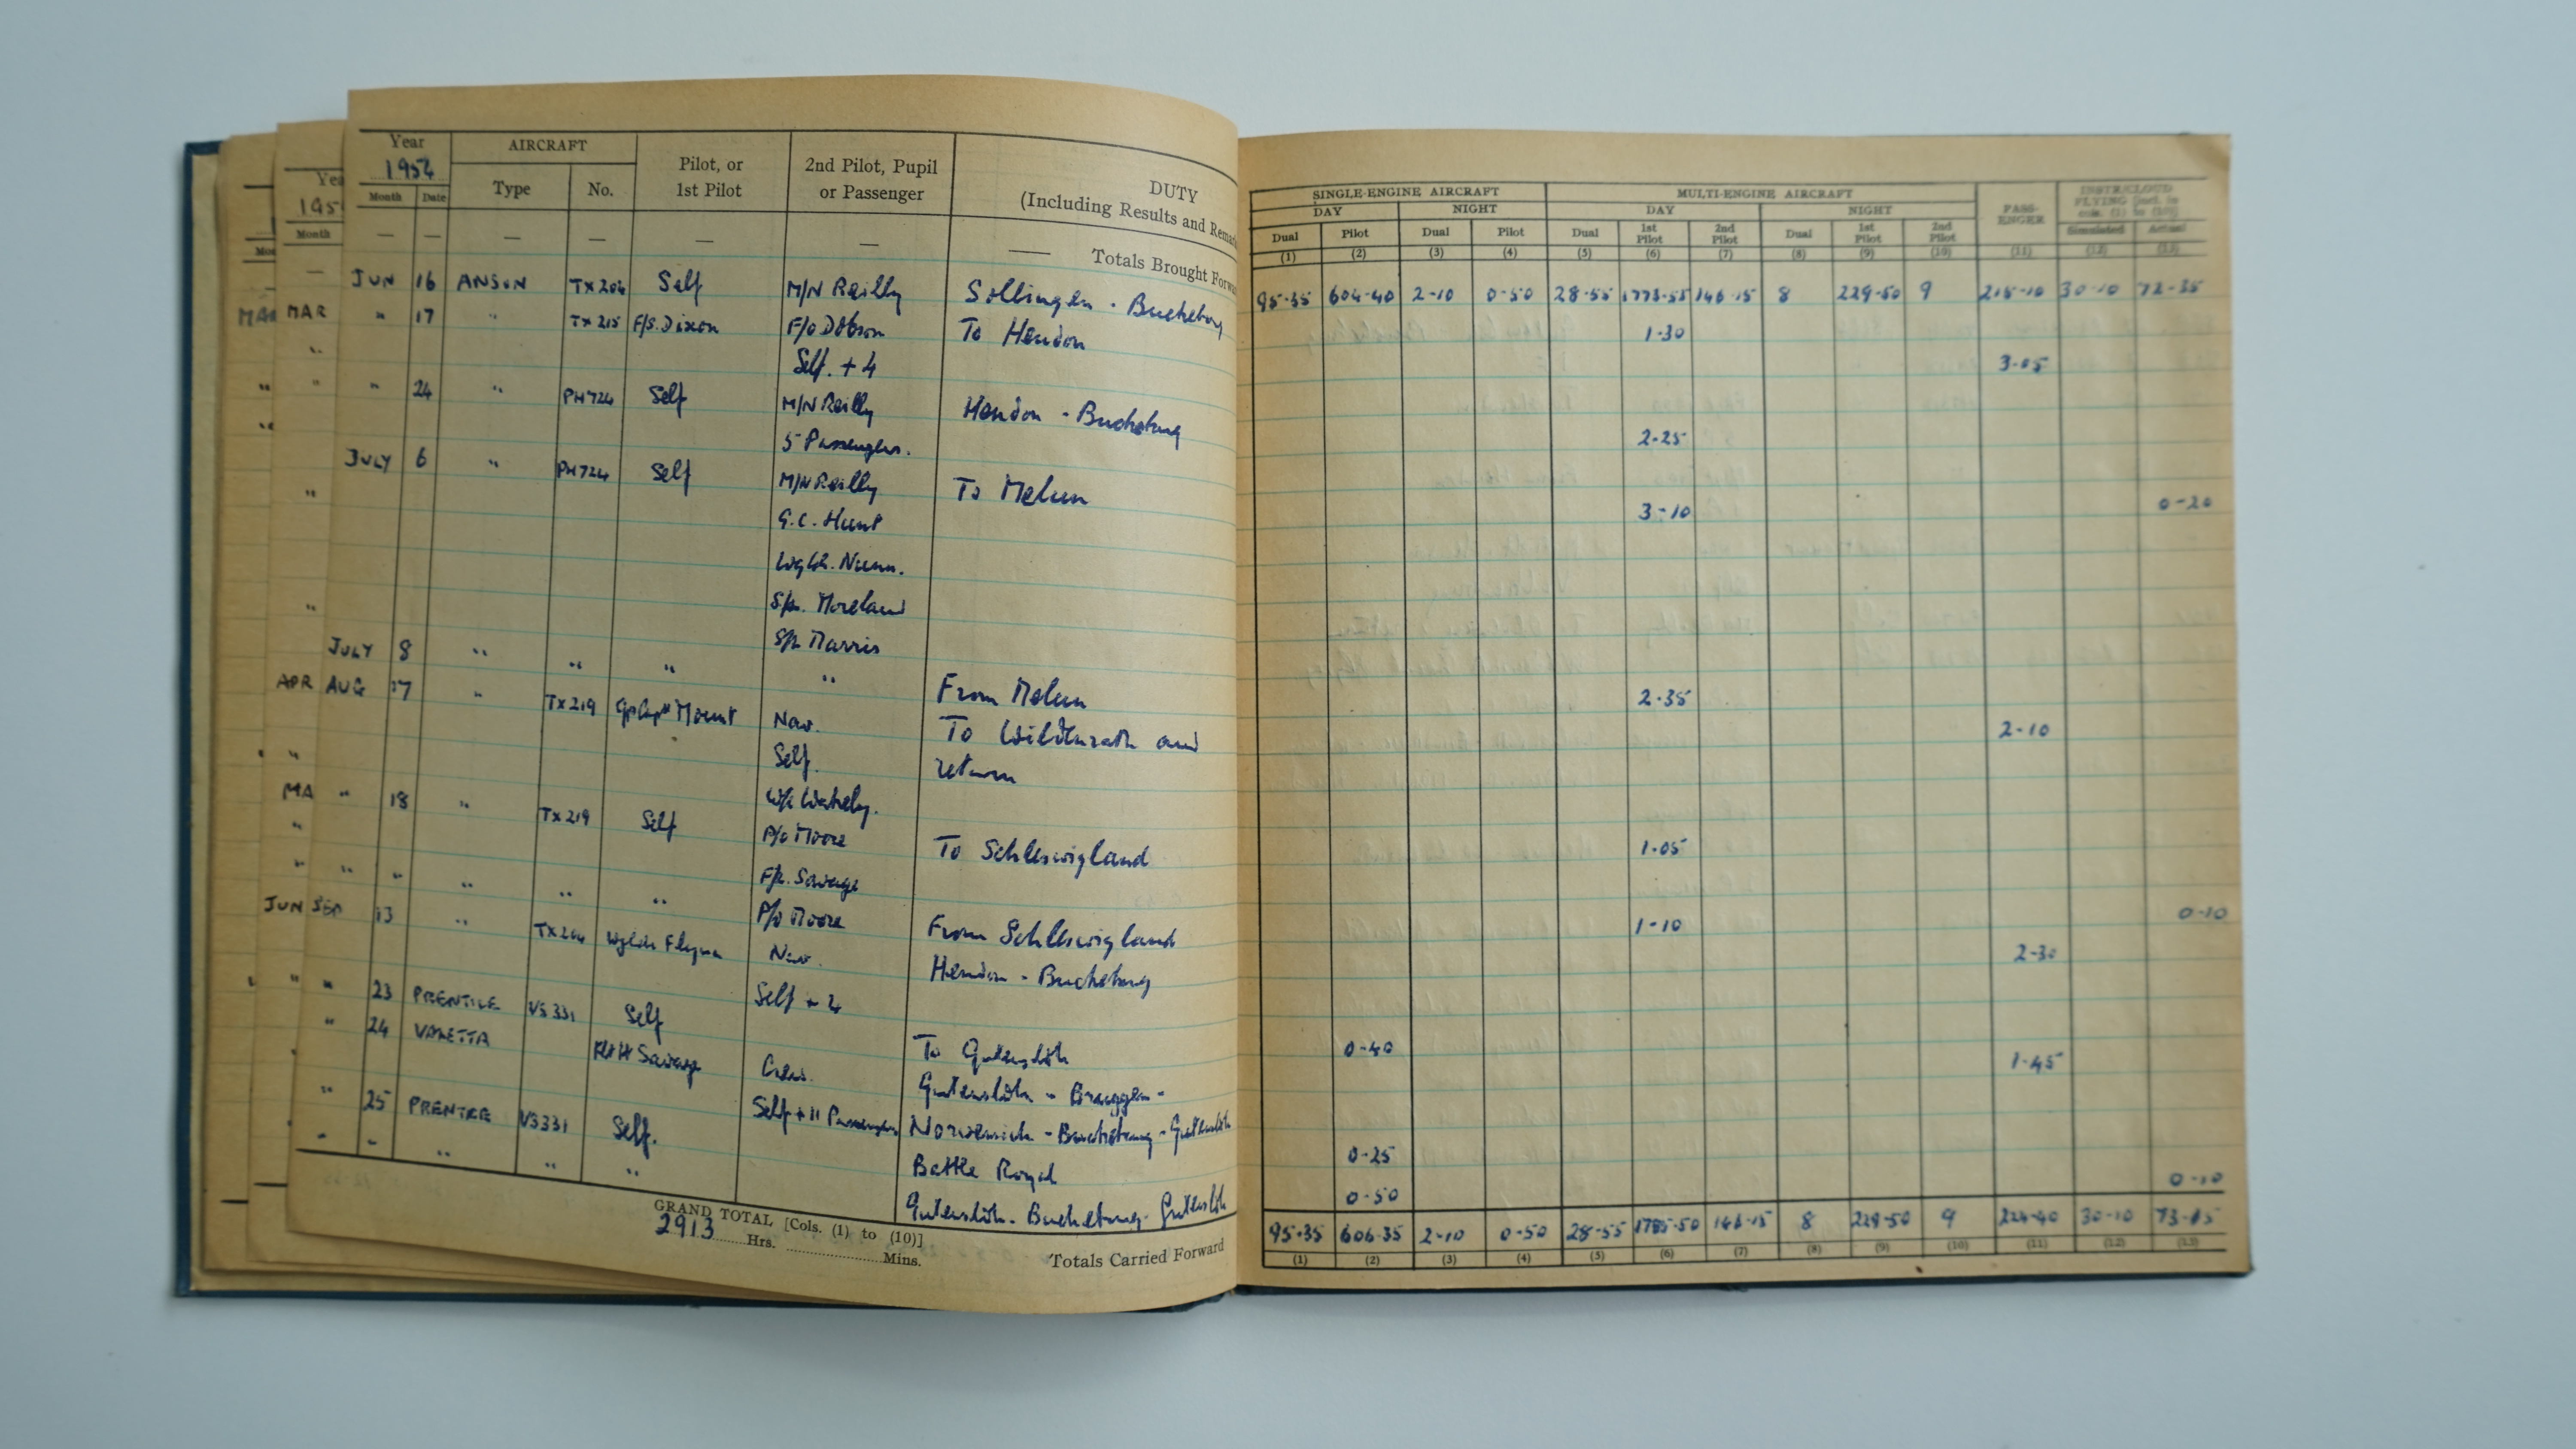 Year AIRCRAFT Pilot, or 1st Pilot 2nd Pilot, Pupil or Passenger DUTY (Including Results and Remarks
1954
Month Date Type No.
— — — — — — —— Totals Brought Forwa
JUN 16 ANSON TX204 Self M/N Reilly Sollingen - Bückeburg
" 17 " TX215 F/S. Dixon F/O Dobson To Hendon
Self. + 4
" 24 " PH724 Self M/N Reilly Hendon - Buckeburg
5 Passengers.
JULY 6 " PH724 Self M/N Reilly To Melun
G.C. Hunt
Wg Cdr. Nunn.
S/L. Moreland
S/L Marris
JULY 8 " " " " From Melun
AUG 17 " TX219 Gp Capt Mount Nav. To Wildenrath and
Self. return
W/C
" 18 " TX219 Self P/O Moore To Schleswigland
F/L. Savage
" " " " " P/O Moore From Schleswigland
SEP 13 " TX204 Wg Cdr Flynn Nav. Hendon - Buckeburg
Self + 4
" 23 PRENTICE VS331 Self To Gutersloh
" 24 VALETTA Flt Lt Savage Crew. Gutersloh - Bruggen -
Self + 11 Passengers Norvenich - Buckeburg - Gutersloh
" 25 PRENTICE VS331 Self. Battle Royal
" " " " " Gutersloh - Buckeburg - Gutersloh
GRAND TOTAL [Cols. (1) to (10)]
2913 Hrs. Mins. Totals Carried Forward
Yea
195
Month
MAR
APR
MA
JUN
SINGLE-ENGINE AIRCRAFT MULTI-ENGINE AIRCRAFT PASS-ENGER INSTR/CLOUD FLYING [incl. in cols. (1) to (10)]
DAY NIGHT DAY NIGHT
Dual Pilot Dual Pilot Dual 1st Pilot 2nd Pilot Dual 1st Pilot 2nd Pilot Simulated Actual
(1) (2) (3) (4) (5) (6) (7) (8) (9) (10) (11) (12) (13)
95-35 604-40 2-10 0-50 28-55 1773-55 146-15 8 229-50 9 215-10 30-10 72-35
1-30
3-05
2-25
3-10 0-20
2-35
2-10
1-05
1-10 0-10
2-30
0-40
1-45
0-25
0-50 0-10
95-35 606-35 2-10 0-50 28-55 1785-50 146-15 8 229-50 9 224-40 30-10 73-15
(1) (2) (3) (4) (5) (6) (7) (8) (9) (10) (11) (12) (13)